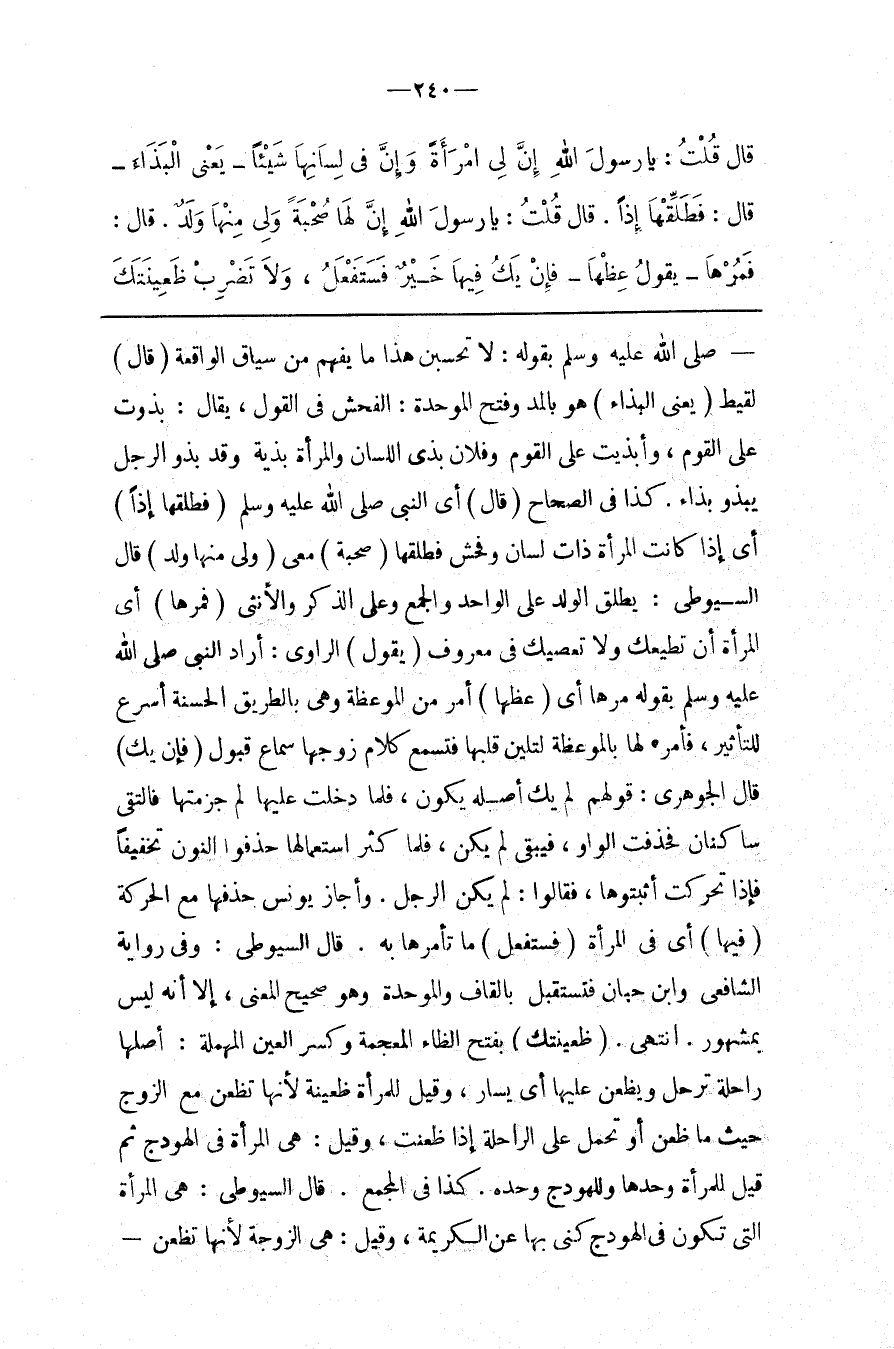 —٢٤٠—
قال قُلْتُ : يارسولَ اللهِ إِنَّ لِى امْرَأَةً وَإِنَّ فى لِسَانِهَا شَيْئًا ـ يَعْنِى الْبَذَاءَ ـ
قال : فَطَلِّقْهَا إِذاً . قال قُلْتُ : يارسولَ اللهِ إِنَّ لَهَا صُحْبَةً وَلِى مِنْهَا وَلَدٌ . قال :
فَمُرْهَا ـ يقولُ عِظْهَا ـ فَإِنْ يَكُ فِيهَا خَـيْرٌ فَسَتَفْعَلُ ، وَلَا تَضْرِبْ ظَعِينَتَكَ
— صلى الله عليه وسلم بقوله : لا تحسبن هذا ما يفهم من سياق الواقعة ( قال )
لقيط ( يعنى البذاء ) هو بالمد وفتح الموحدة : الفحش فى القول ، يقال : بذوت
على القوم ، وأبذيت على القوم وفلان بذى اللسان والمرأة بذية وقد بذو الرجل
يبذو بذاء . كذا فى الصحاح ( قال ) أى النبى صلى الله عليه وسلم ( فطلقها إذاً )
أى إذا كانت المرأة ذات لسان وفحش فطلقها ( صحبة ) معى ( ولى منها ولد ) قال
السـيوطى : يطلق الولد على الواحد والجمع وعلى الذكر والأنثى ( فمرها ) أى
المرأة أن تطيعك ولا تعصيك فى معروف ( يقول ) الراوى : أراد النبى صلى الله
عليه وسلم بقوله مرها أى ( عظها ) أمر من الموعظة وهى بالطريق الحسنة أسرع
للتأثير ، فأمره لها بالموعظة لتلين قلبها فتسمع كلام زوجها سماع قبول ( فإن يك)
قال الجوهرى : قولهم لم يك أصـله يكون ، فلما دخلت عليها لم جزمتها فالتقى
ساكنان فحذفت الواو ، فيبقى لم يكن ، فلما كثر استعمالها حذفوا النون تخفيفاً
فإذا تحركت أثبتوها ، فقالوا : لم يكن الرجل . وأجاز يونس حذفها مع الحركة
( فيها ) أى فى المرأة ( فستفعل ) ما تأمرها به . قال السيوطى : وفى رواية
الشافعى وابن حبان فتستقبل بالقاف والموحدة وهو صحيح المعنى ، إلا أنه ليس
بمشهور . انتهى . ( ظعينتك ) بفتح الظاء المعجمة وكسر العين المهملة : أصلها
راحلة ترحل ويظعن عليها أى يسار ، وقيل للمرأة ظعينة لأنها تظعن مع الزوج
حيث ما ظعن أو تحمل على الراحلة إذا ظعنت ، وقيل : هى المرأة فى الهودج ثم
قيل للمرأة وحدها وللهودج وحده . كذا فى المجمع . قال السيوطى : هى المرأة
التى تكون فى الهودج كنى بها عن الكريمة ، وقيل : هى الزوجة لأنها تظعن —